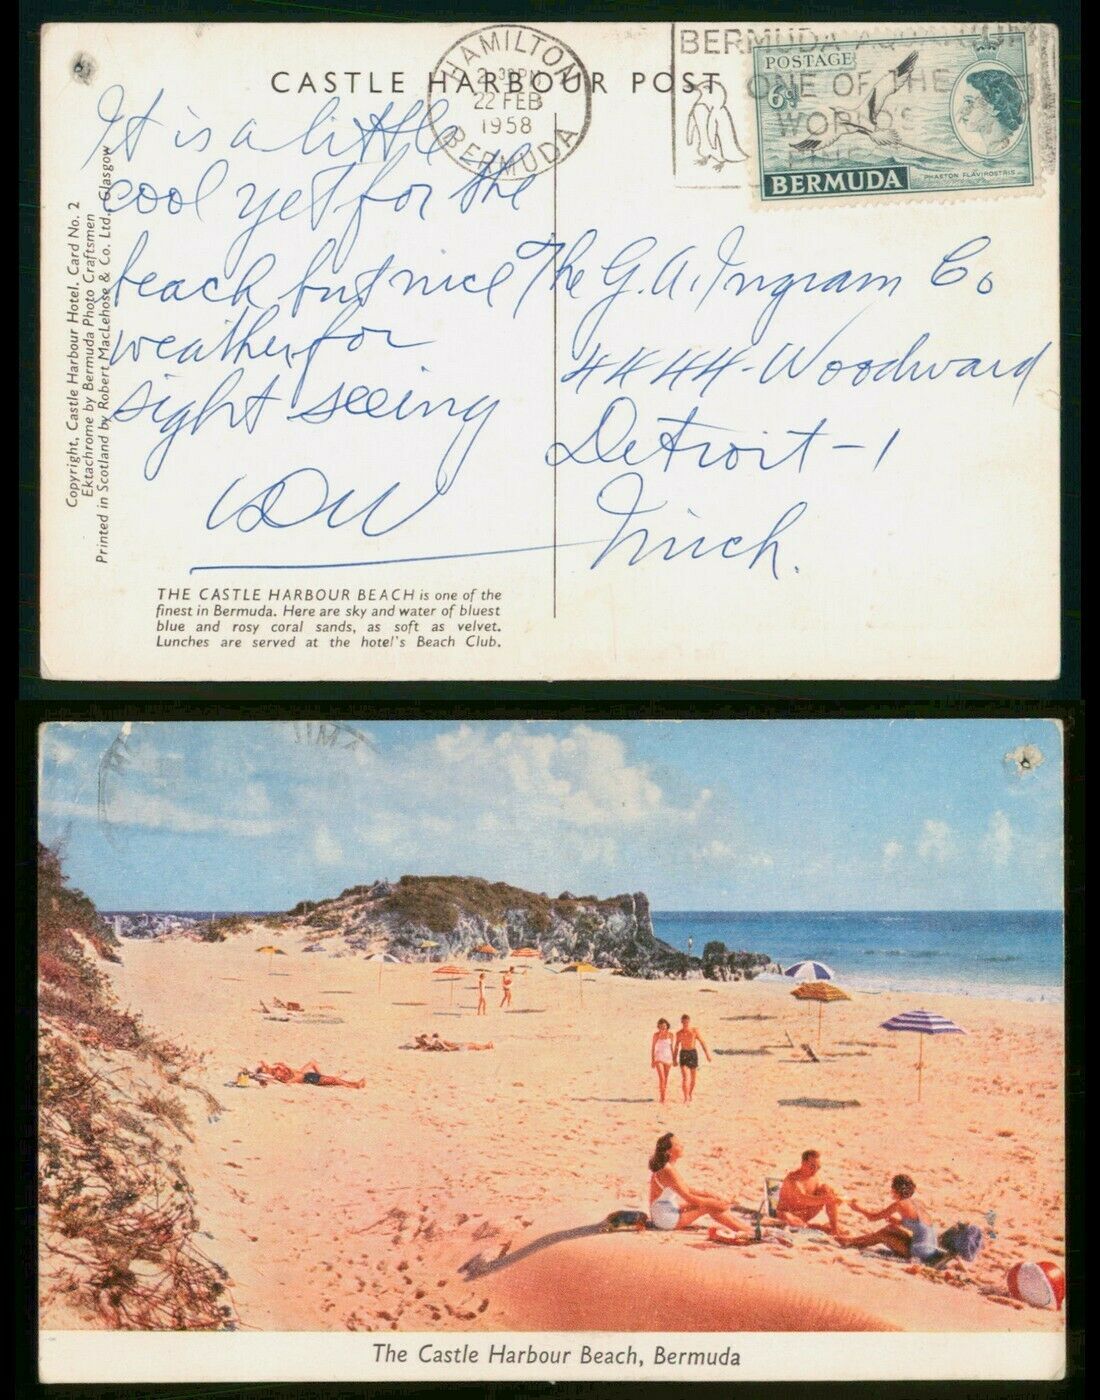 CASTLE HARBOUR POST
HAMILTON
2:30PM
22 FEB
1958
BERMUDA
BERMUDA AQUARIUM
ONE OF THE
WORLD'S
POSTAGE
6d
BERMUDA
PHAETON FLAVIROSTRIS
It is a little
cool yet for the
beach but nice
weather for
sight seeing
The G. A. Ingram Co
4444 - Woodward
Detroit - 1
Mich.
Copyright, Castle Harbour Hotel, Card No. 2
Ektachrome by Bermuda Photo Craftsmen
Printed in Scotland by Robert MacLehose & Co. Ltd., Glasgow
THE CASTLE HARBOUR BEACH is one of the
finest in Bermuda. Here are sky and water of bluest
blue and rosy coral sands, as soft as velvet.
Lunches are served at the hotel's Beach Club.
The Castle Harbour Beach, Bermuda